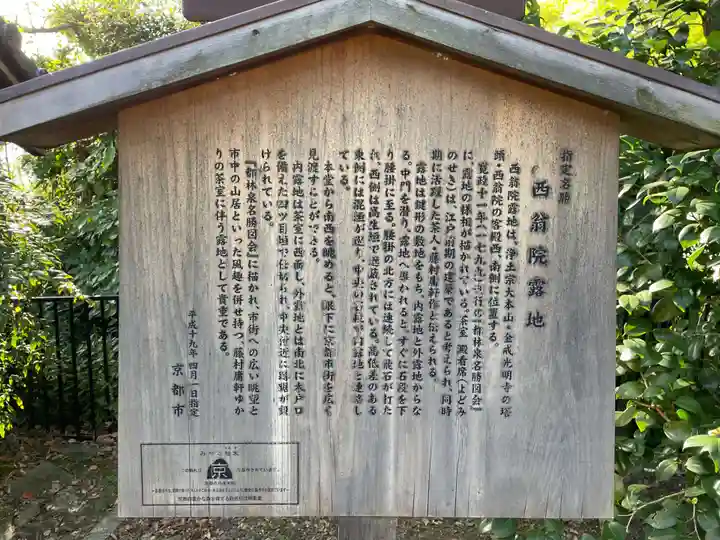 指定名勝
西翁院露地
西翁院露地は、浄土宗大本山・金戒光明寺の塔
頭・西翁院の客殿西、南側に位置する。
寛政十一年(一七九九)刊行の『都林泉名勝図会』
に、露地の様相が描かれている。茶室 澱看席(よどみ
のせき)は、江戸前期の建築であると考えられ、同時
期に活躍した茶人・藤村庸軒作と伝えられる。
露地は鍵形の敷地をもち、内露地と外露地からな
る。中門を潜り、露地へ導かれると、すぐに石段を下
り腰掛に至る。腰掛の北方には連続して飛石が打た
れ、西側は高生垣で遮蔽されている。高低差のある
東側には混垣が廻り、中央の石段で内露地と連絡し
ている。
本堂から南西を眺めると、眼下に京都市街を広く
見渡すことができる。
内露地は茶室に西面し、外露地とは南北に木戸口
を備えた四ツ目垣で仕切られ、中央付近に蹲踞が設
けられている。
『都林泉名勝図会』に描かれ、市街への広い眺望と
市中の山居といった風趣を併せ持つ、藤村庸軒ゆか
りの茶室に伴う露地として貴重である。
平成十九年四月一日指定
京都市
京